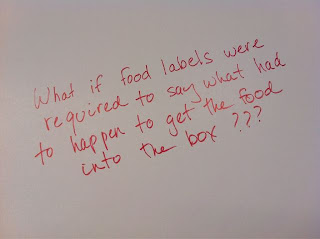 What if food labels were
required to say what had
to happen to get the food
into the box ???